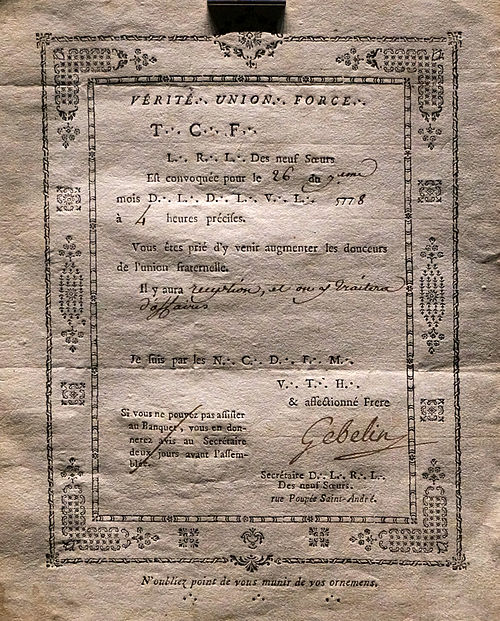 VÉRITÉ∴ UNION∴ FORCE∴
T∴ C∴ F∴
L∴ R∴ L∴ Des neuf Sœurs
Est convoquée pour le 26 du 7eme
mois D∴ L∴ D∴ L∴ V∴ L∴ 5778
à 4 heures précises.
Vous êtes prié d'y venir augmenter les douceurs
de l'union fraternelle.
Il y aura réception, et on y traitera
d'affaires
Je suis par les N∴ C∴ D∴ F∴ M∴
V∴ T∴ H∴
& affectionné Frere
Si vous ne pouvez pas assister
au Banquet, vous en don-
nerez avis au Secrétaire
deux jours avant l'assem-
blée.
Gebelin
Secrétaire D∴ L∴ R∴ L∴
Des neuf Sœurs.
rue Poupée Saint-André.
N'oubliez point de vous munir de vos ornemens.